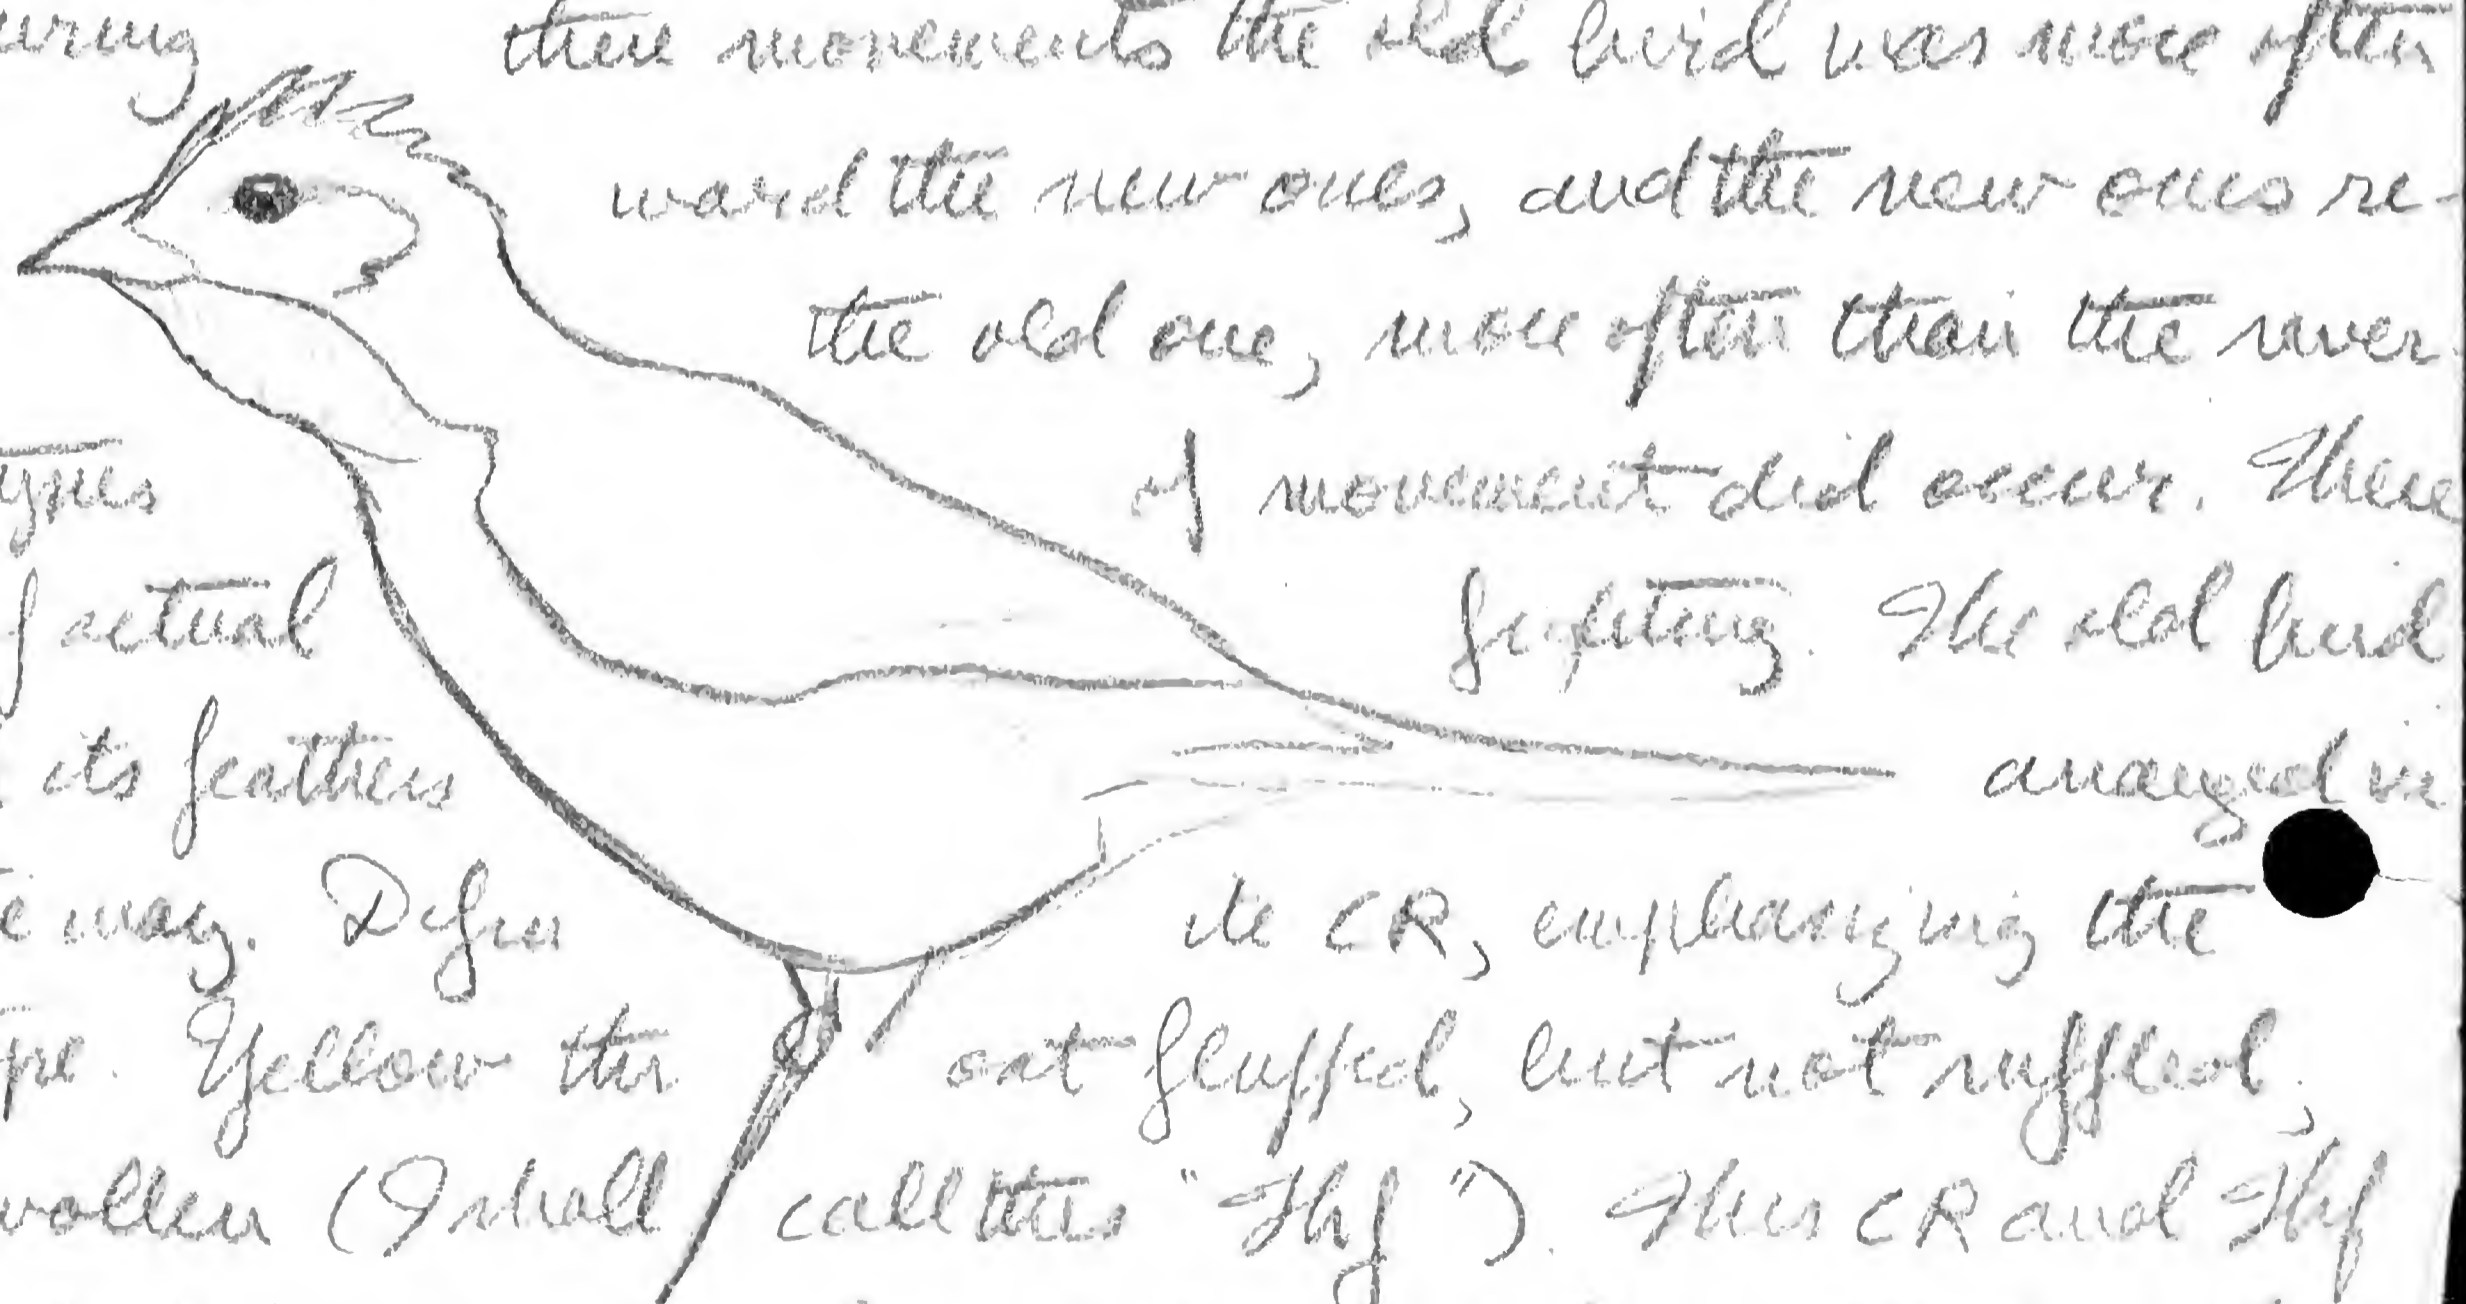 uring these movements the old bird was more often
ward the new ones, and the new ones re-
the old one, more often than the rever
ypes of movement did occur. There
f actual fighting. The old bird
its feathers arranged in
e way. Defin ite CR, emphasizing the
pe. Yellow thr oat fluffed, but not ruffled,
wollen (I shall call this "Thf"). This CR and Thf